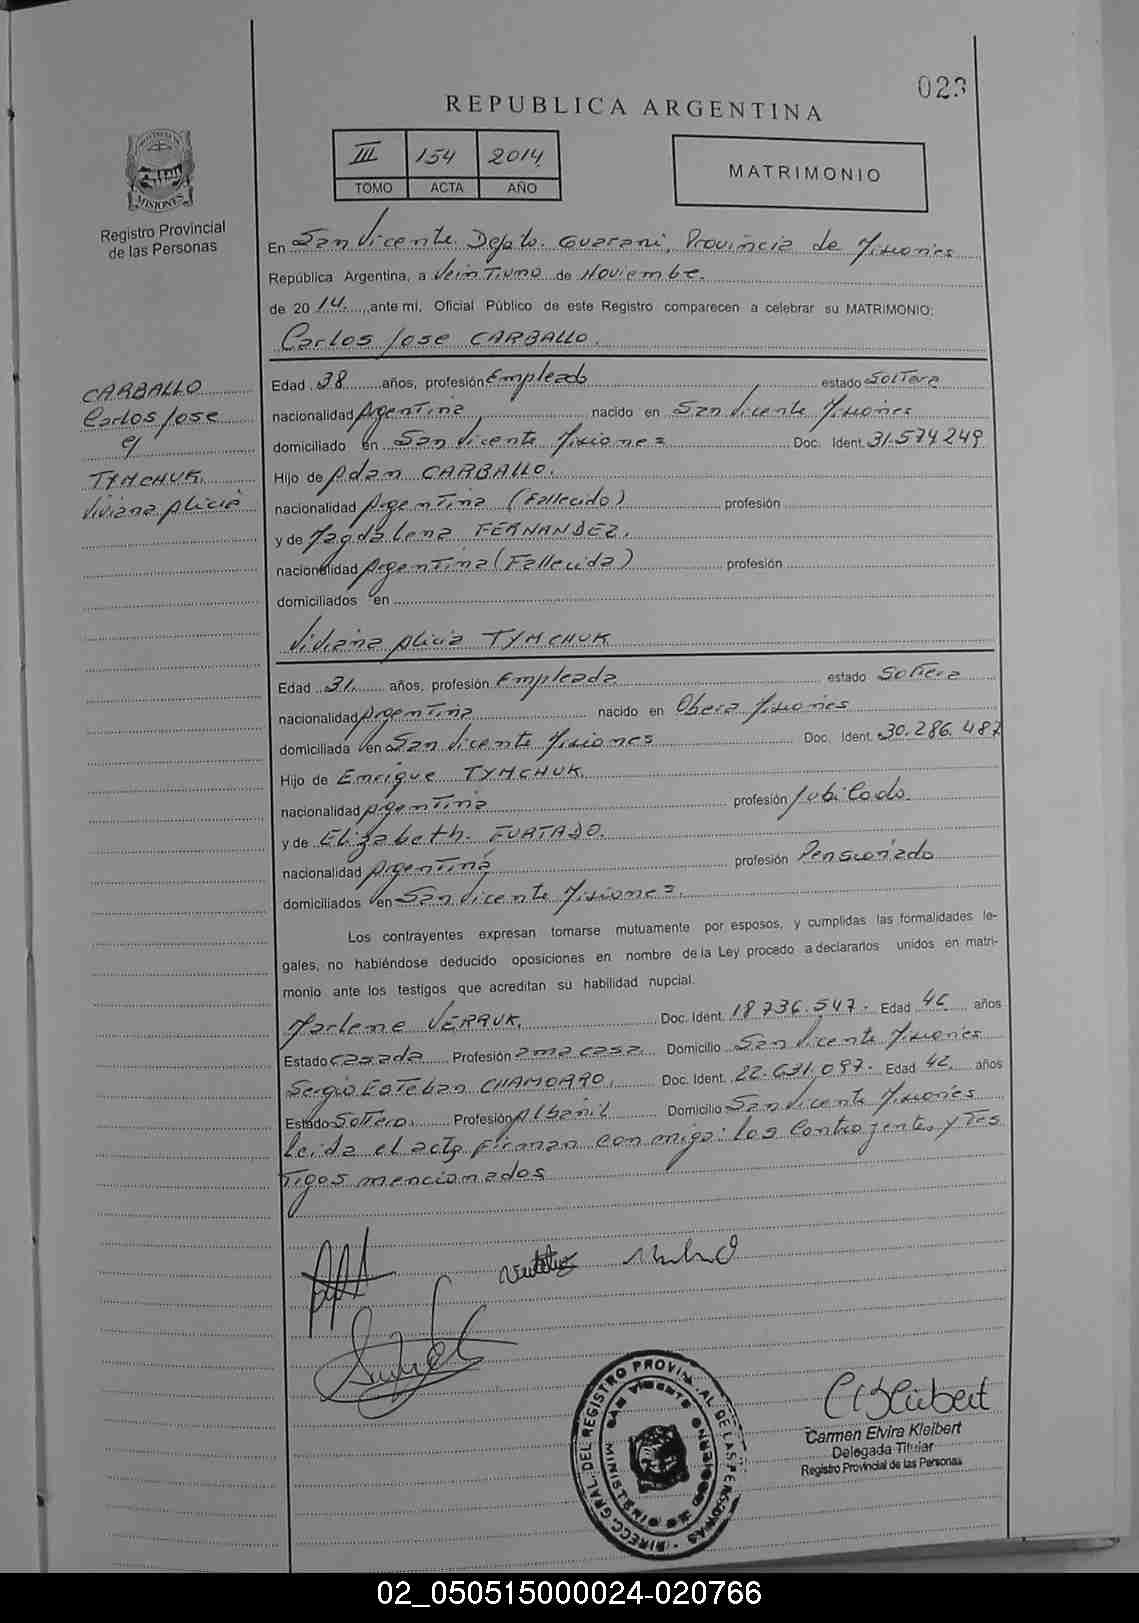 023
REPUBLICA ARGENTINA
III 154 2014
TOMO ACTA AÑO
MATRIMONIO
PROVINCIA DE
MISIONES
Registro Provincial
de las Personas
En San Vicente. Depto. Guarani, Provincia de Misiones
República Argentina, a Veintiuno de Noviembre.
de 2014. ante mí, Oficial Público de este Registro comparecen a celebrar su MATRIMONIO:
Carlos Jose CARBALLO.
CARBALLO
Carlos Jose
y
TYMCHUK.
Viviana Alicia
Edad 38 años, profesión Empleado estado Soltero
nacionalidad Argentina nacido en San Vicente Misiones
domiciliado en San Vicente Misiones Doc. Ident. 31.574249
Hijo de Adan CARBALLO.
nacionalidad Argentina (Fallecido) profesión
y de Magdalena FERNANDEZ.
nacionalidad Argentina (Fallecida) profesión
domiciliados en
Viviana Alicia TYMCHUK
Edad 31. años, profesión Empleada estado Soltera
nacionalidad Argentina nacido en Obera Misiones
domiciliada en San Vicente Misiones Doc. Ident. 30.286.487
Hijo de Enrique TYMCHUK.
nacionalidad Argentina profesión Jubilado.
y de Elizabeth. FURTADO.
nacionalidad Argentina profesión Pensionado
domiciliados en San Vicente Misiones.
Los contrayentes expresan tomarse mutuamente por esposos, y cumplidas las formalidades le-
gales, no habiéndose deducido oposiciones en nombre de la Ley procedo a declararlos unidos en matri-
monio ante los testigos que acreditan su habilidad nupcial.
Marlene VERRUK. Doc. Ident. 18736.547. Edad 46 años
Estado casada Profesión ama casa. Domicilio San Vicente Misiones
Sergio Esteban CHAMORRO. Doc. Ident. 22.631.097. Edad 42. años
Estado Soltero. Profesión Albañil Domicilio San Vicente Misiones
Leida el acta firman con migo: los Contrayente. y Tes
tigos mencionados
DIRECC. GRAL. DEL REGISTRO PROVINCIAL DE LAS PERSONAS
SAN VICENTE
MINISTERIO DE GOBIERNO
Carmen Elvira Kleibert
Delegada Titular
Registro Provincial de las Personas
02_050515000024-020766